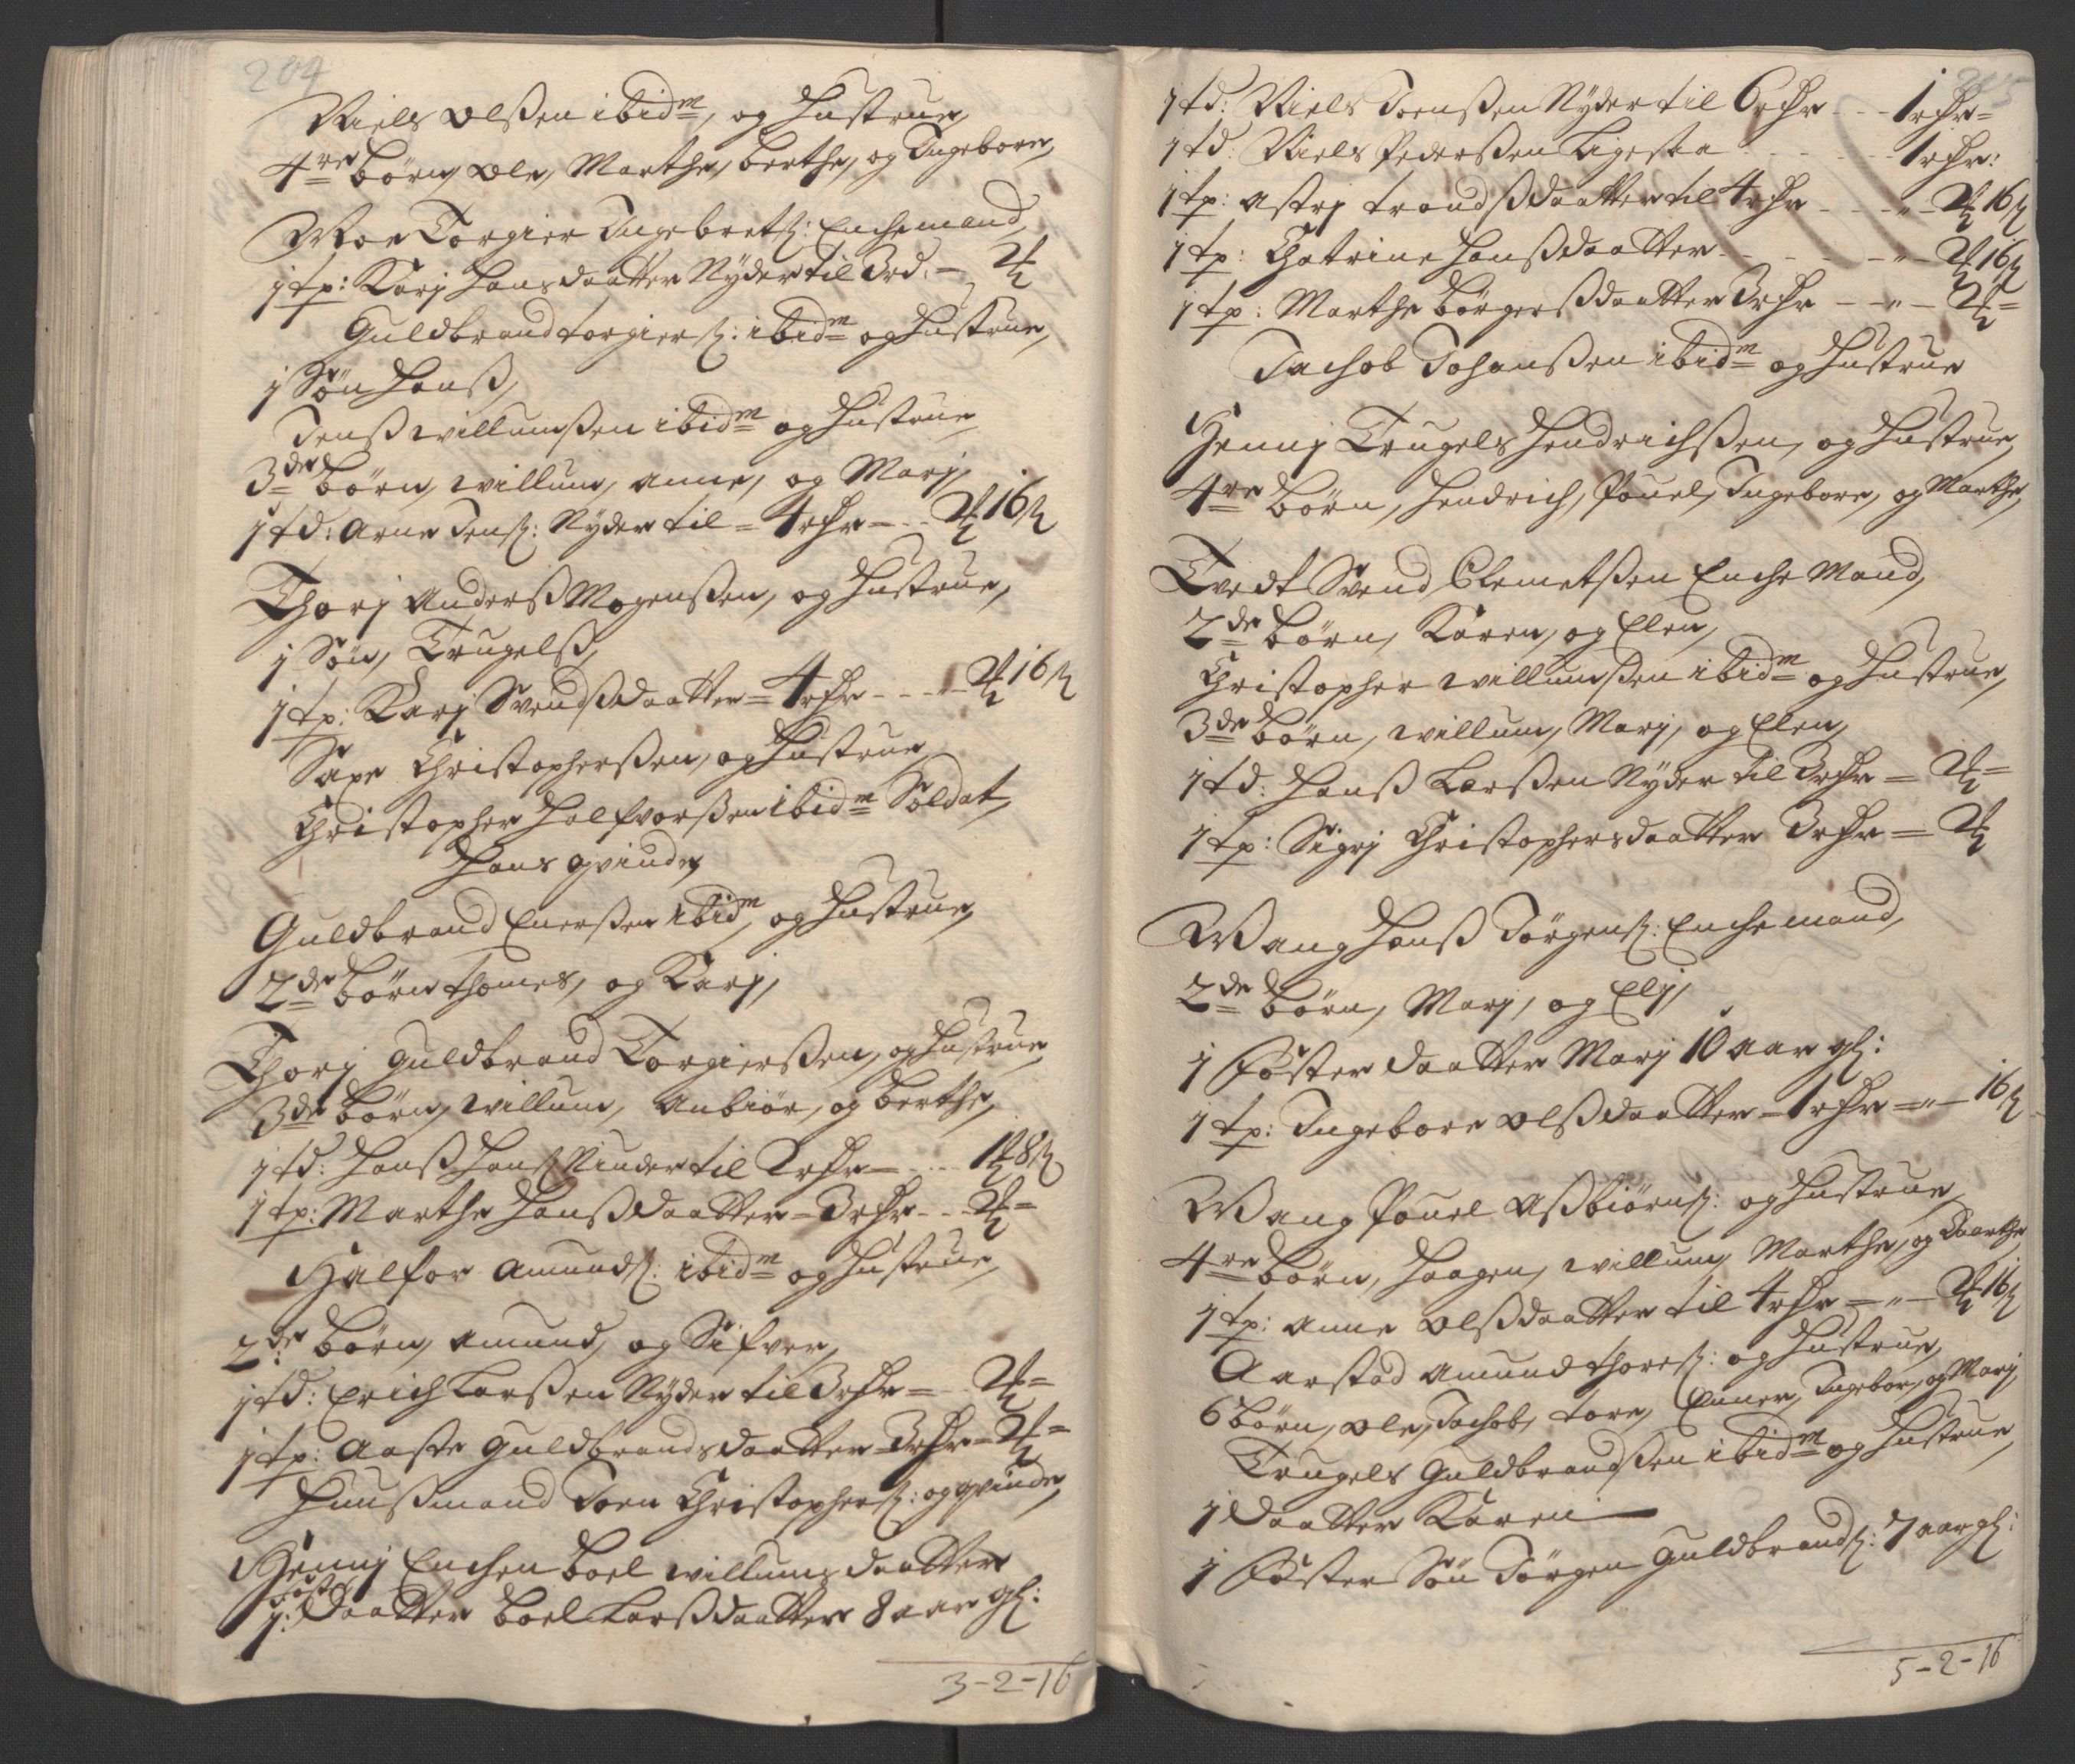 204
Niels Olßen ibidm, og Hustrue,
4re börn, Ole, Marthe, berthe, og Ingebore,
Moe Torgier Ingebretß: Enchemand,
1 tp: Karj Hansdaatter Nyder til 3rd: =
Guldbrand torgierß: ibidm og Hustrue,
1 Sön Hanß,
Jenß willumßen ibidm og Hustrue
3de börn, willum, anne, og Marj,
1 td: Arne Jenß: Nyder til = 4 rdr = 16 ß
Thorj Anderß Mogenßen, og Hustrue,
1 Sön, Trugelß,
1 tp: Karj Svendßdaatter = 4 rdr - - - 16 ß
Saxe Christopherßen, og Hustrue
Christopher Halfvorßen ibidm Soldat,
Hans qvinde,
Guldbrand Enerßen ibidm, og Hustrue,
2de börn thomes, og Karj,
Thorj Guldbrand Torgierßen, og Hustrue,
3de börn, willum, anbiör, og berthe,
1 td: Hanß Hanß Niuder til 2 rdr = 1 8 ß
1 tp: Marthe Hanßdaatter = 3 rdr - -
Halfor Amundß: ibidm og Hustrue,
2de börn, Amund, og Sifver,
1 td: Erich Larßen Nyder til 3 rdr =
1 tp: Aaste Guldbrandsdaatter = 3 rdr =
Huußmand Joen Christopherß: og qvinde,
Hennj Enchen boel willumsdaatter
fost
1: daatter boel Larßdaatter 8 aar gl:
3-2-16
205
1 td: Niels Joenßen Nyder til 6 rdr - - 1 rdr =
1 td: Niels Pederßen Ligesaa - - - - 1 rdr:
1 tp: Astrj trondßdaatter til 4 rdr - - - 16 ß
1 tp: Chatrine Hanßdaatter - - - - 16 ß
1 tp: Marthe börgerßdaatter 3 rdr - -
Jachob Johanßen ibidm og Hustrue
Hennj Trugels Hendrichßen, og Hustrue,
4re börn, Hendrich, Pouel, Ingebore, og Marthe,
Tvedt Svend Clemetßen Enche Mand,
2de börn, Karen, og Elen,
Christopher willumßen ibidm og Hustrue,
3de börn, willum, Marj, og Elen,
1 td: Hanß Larßen Nyder til 3 rdr =
1 tp: Sigrj Christophersdaatter 3 rdr =
Wang Hanß Jörgenß: Enche mand,
2de börn, Marj, og Elj,
1 Föster daatter Marj 10 aar gl:
1 tp: Ingebore Olßdaatter = 1 rdr = " - 16 ß
Wang Pouel Aßbiörnß: og Hustrue
4re börn, Haagen, willum, Marthe, og Daarthe,
1 tp: Anne Olßdaatter til 4 rdr = " - 16 ß
Aarstad Amund thoreß: og Hustrue,
6 börn, Ole, Jachob, tore, Enner, Ingebor, og Marj,
Trugels Guldbrandßen ibidm og Hustrue,
1 daatter Karen
1 Föster Sön Jörgen Guldbrandß: 7 aar gl:
5-2-16